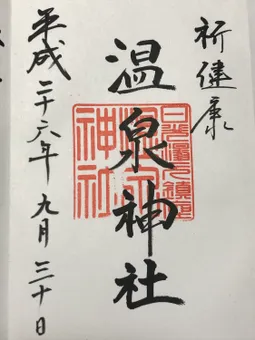 祈健康
温泉神社
平成二十六年九月三十日